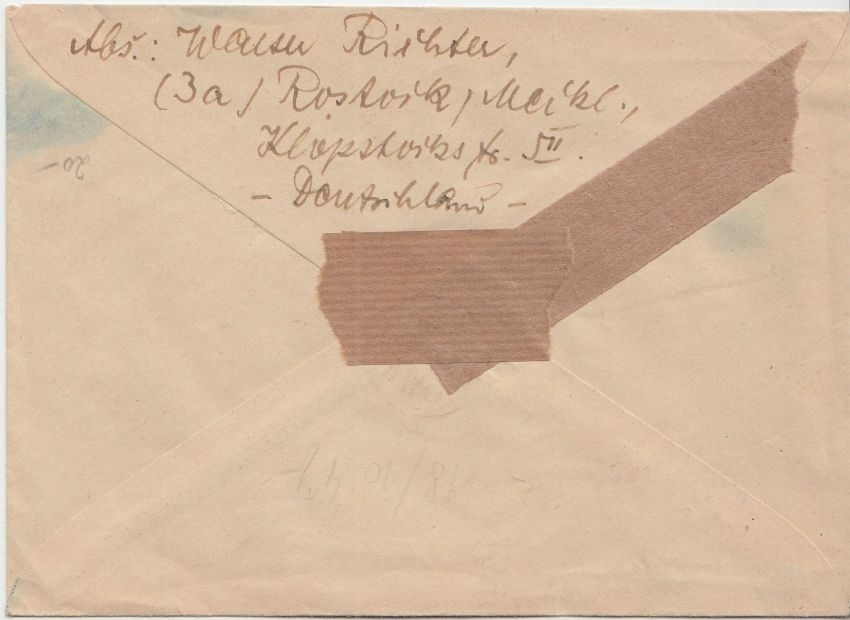 Abs.: Walter Richter,
(3a) Rostock, Meckl.,
Klopstockstr. 5II.
- Deutschland -
20-